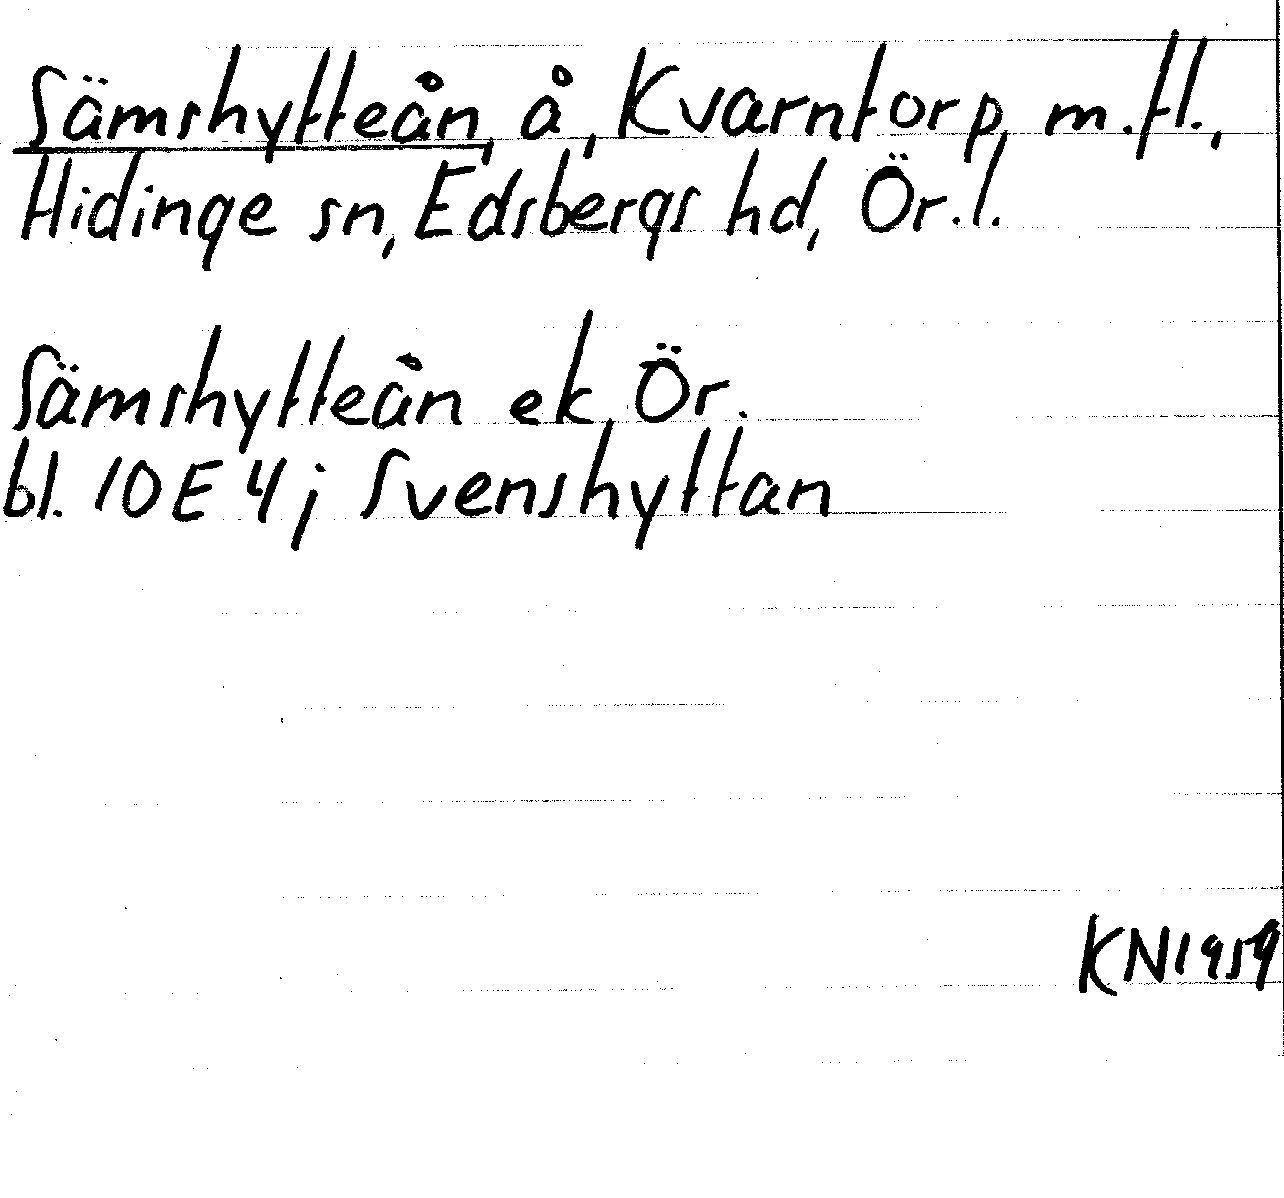 Sämshytteån, å, Kvarntorp m.fl.,
Hidinge sn, Edsbergs hd, Ör.l.
Sämshytteån ek, Ör.
bl. 10E 4j Svenshyttan
KN1959